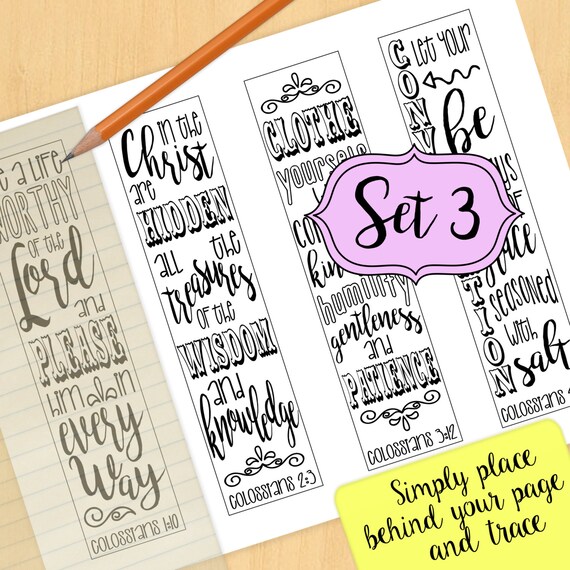 a life
WORTHY
of the
Lord
and
PLEASE
him
every
Way
COLOSSIANS 1:10
in the
Christ
are
HIDDEN
all the
treasures
OF THE
WISDOM
and
knowledge
COLOSSIANS 2:3
CLOTHE
humility
gentleness
and
PATIENCE
COLOSSIANS 3:12
LET YOUR
be
SEASONED
with
salt
COLOSSIANS
Set 3
Simply place
behind your page
and trace